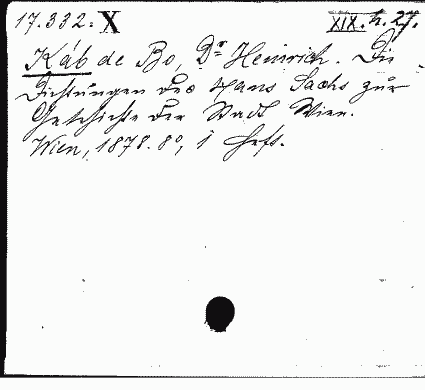 17.332. X XIX. h. 27.
Káb de Bo, Dr Heinrich. Die
Dichtungen des Hans Sachs zur
Geschichte der Stadt Wien.
Wien, 1878. 8°, 1 Heft.